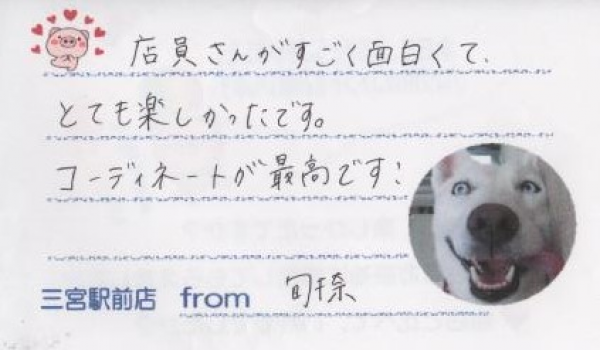 店員さんがすごく面白くて、
とても楽しかったです。
コーディネートが最高です!
三宮駅前店 from 旬奈